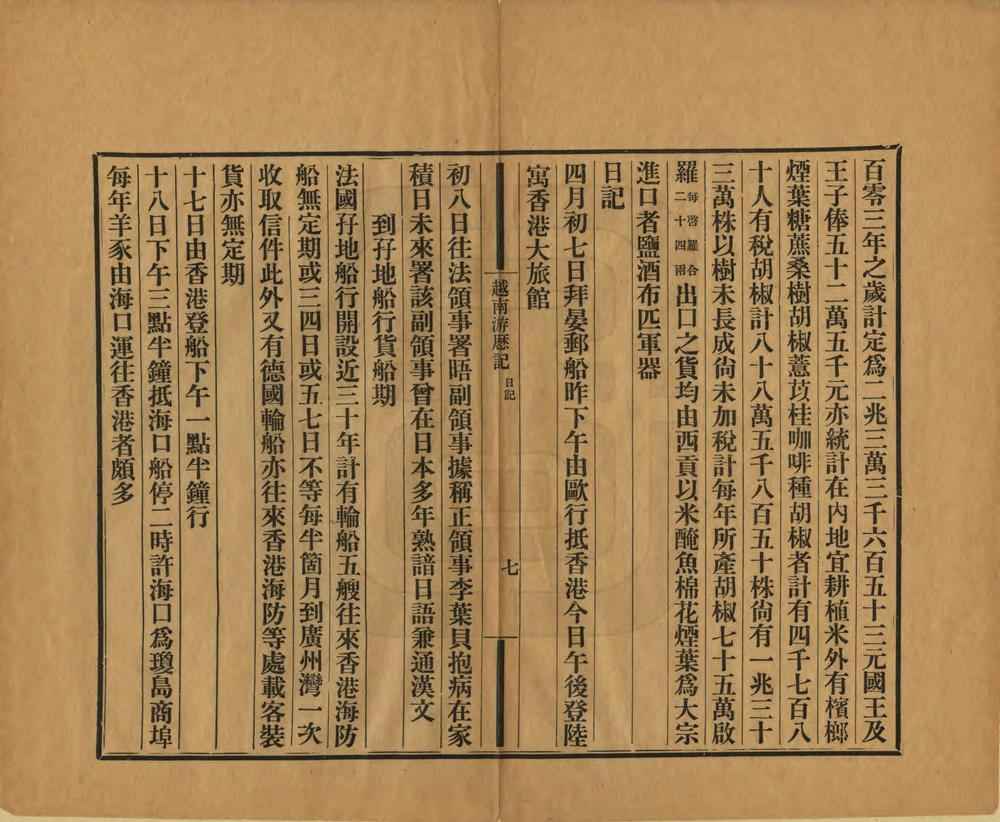 百零三年之歲計定爲二兆三萬三千六百五十三元國王及
王子俸五十二萬五千元亦統計在內地宜耕植米外有檳榔
煙葉糖蔗桑樹胡椒薏苡桂咖啡種胡椒者計有四千七百八
十人有稅胡椒計八十八萬五千八百五十株尙有一兆三十
三萬株以樹未長成尙未加稅計每年所產胡椒七十五萬啟
羅每啓羅合二十四兩出口之貨均由西貢以米醃魚棉花煙葉爲大宗
進口者鹽酒布匹軍器
日記
四月初七日拜晏郵船昨下午由歐行抵香港今日午後登陸
寓香港大旅館
越南游歷記 日記 七
初八日往法領事署晤副領事據稱正領事李葉貝抱病在家
積日未來署該副領事曾在日本多年熟諳日語兼通漢文
到孖地船行貨船期
法國孖地船行開設近三十年計有輪船五艘往來香港海防
船無定期或三四日或五七日不等每半箇月到廣州灣一次
收取信件此外又有德國輪船亦往來香港海防等處載客裝
貨亦無定期
十七日由香港登船下午一點半鐘行
十八日下午三點半鐘抵海口船停二時許海口爲瓊島商埠
每年羊豕由海口運往香港者頗多